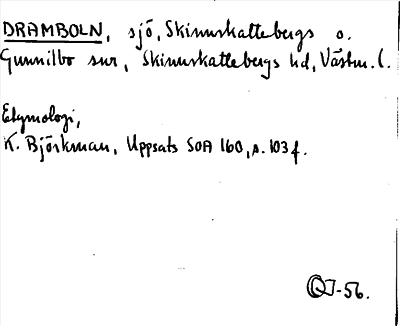 DRAMBOLN, sjö, Skinnskattebergs o.
Gunnilbo snr, Skinnskattebergs hd, Västm. l.
Etymologi,
K. Björkman, Uppsats SOA 160, s. 103 f.
OJ-56.